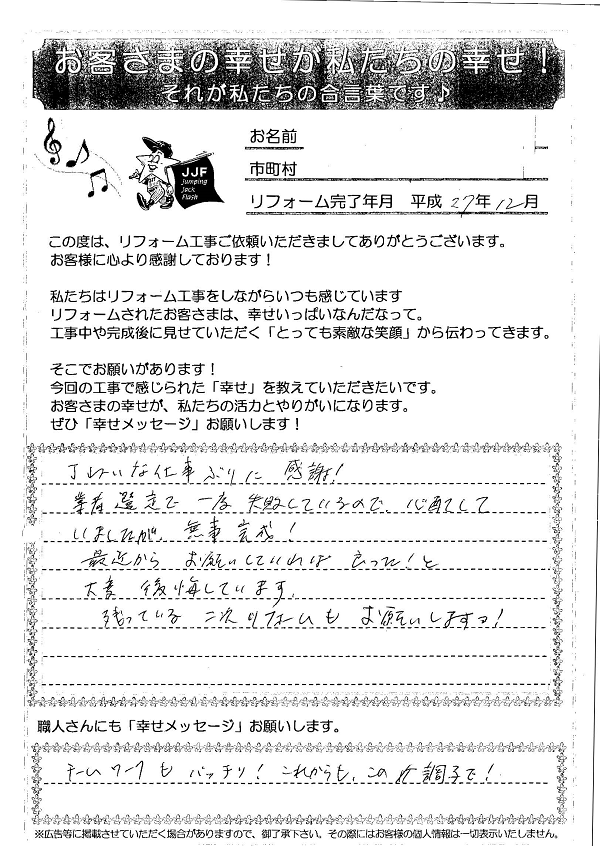 お客さまの幸せが私たちの幸せ！
それが私たちの合言葉です♪
お名前
JJF
Jumping
Jack
Flash
市町村
リフォーム完了年月 平成 27年 12月
この度は、リフォーム工事ご依頼いただきましてありがとうございます。
お客様に心より感謝しております！
私たちはリフォーム工事をしながらいつも感じています
リフォームされたお客さまは、幸せいっぱいなんだなって。
工事中や完成後に見せていただく「とっても素敵な笑顔」から伝わってきます。
そこでお願いがあります！
今回の工事で感じられた「幸せ」を教えていただきたいです。
お客さまの幸せが、私たちの活力とやりがいになります。
ぜひ「幸せメッセージ」お願いします！
丁ねいな仕事ぶりに 感謝！
業者選定で 一度 失敗しているので、心配して
いましたが、無事 完成！
最近から お願いしていれば 良った！と
大変 後悔しています。
残っている 二次リフォームも お願いしますっ！
職人さんにも「幸せメッセージ」お願いします。
チームワークも バッチリ！これからも、この 調子で！
※広告等に掲載させていただく場合がありますので、御了承下さい。その際にはお客様の個人情報は一切表示いたしません。